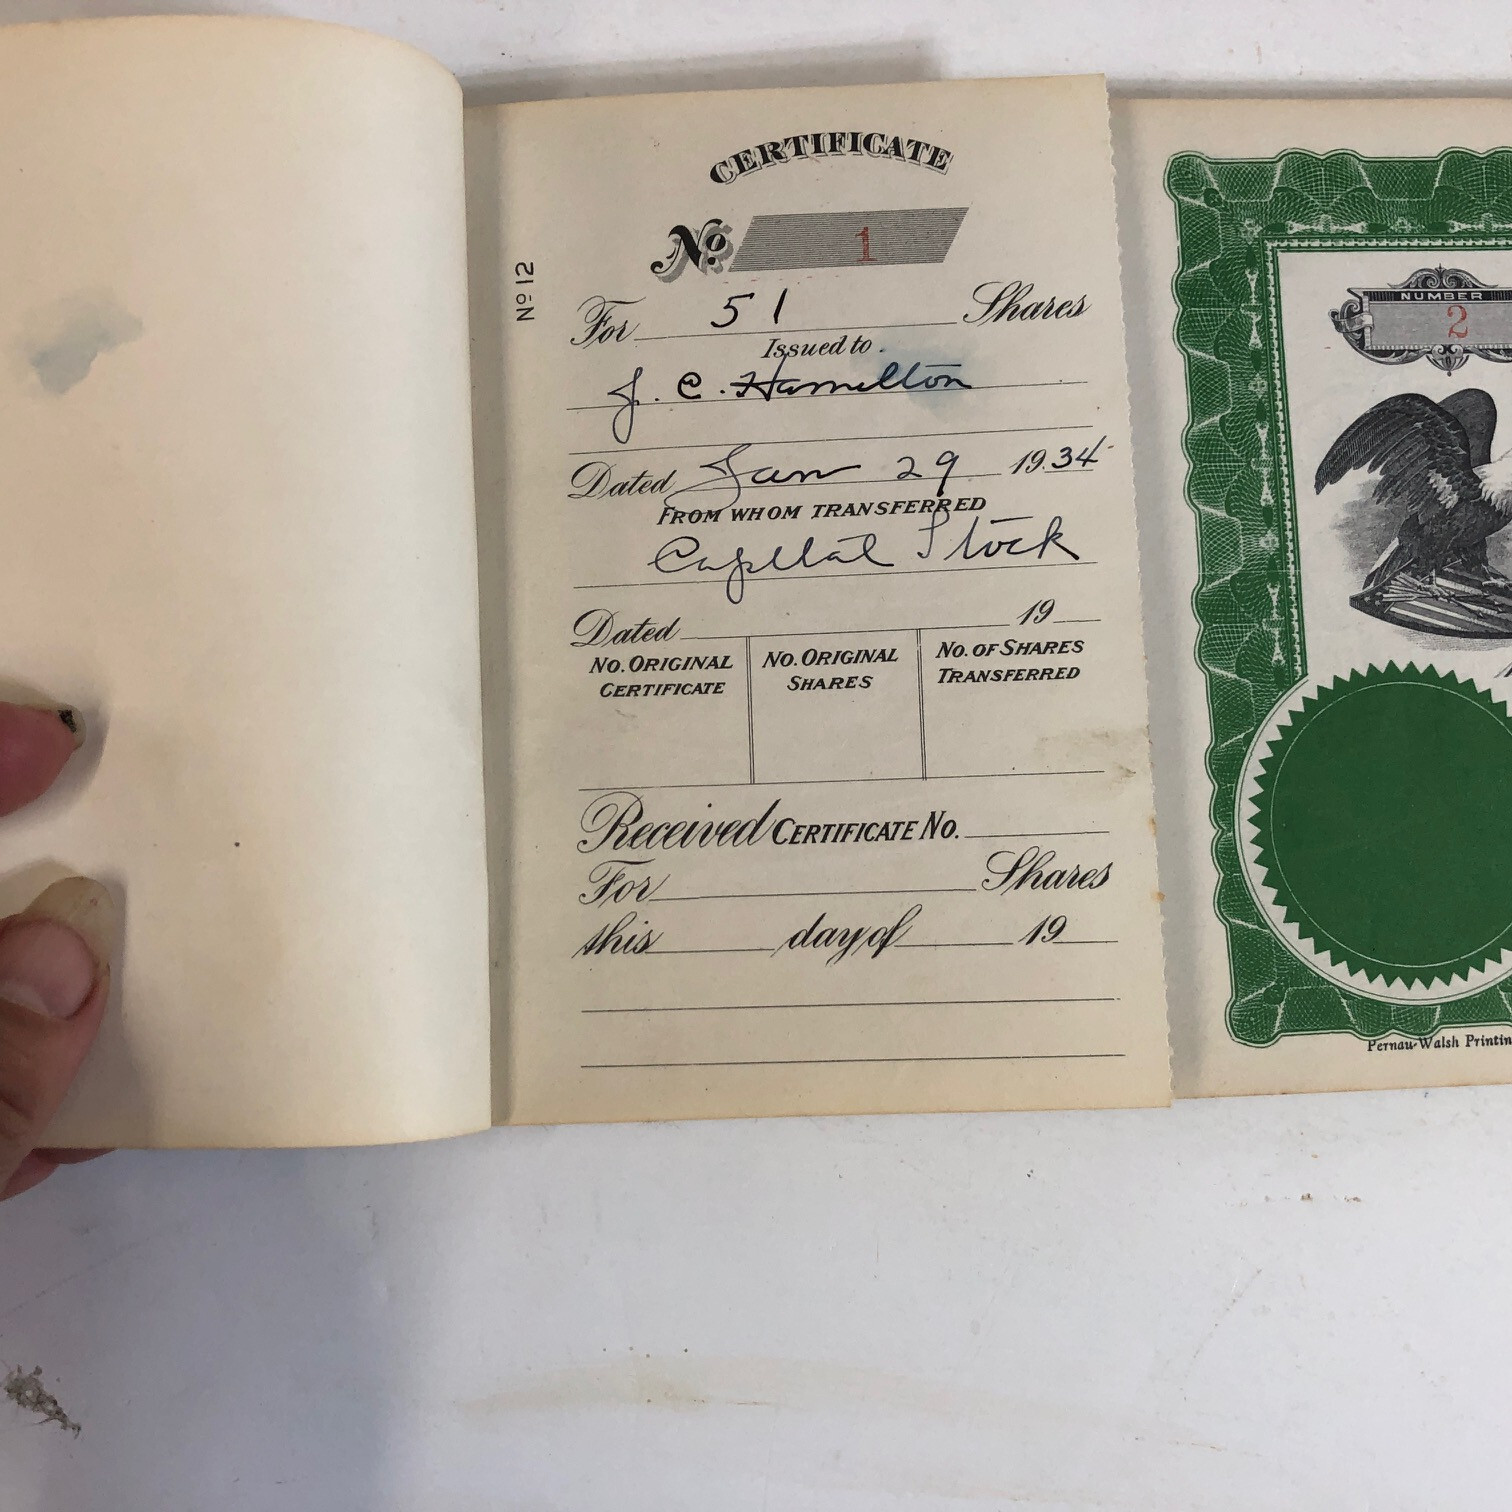 CERTIFICATE
No. 1
No 12
For 51 Shares
Issued to
J. C. Hamilton
Dated Jan 29 1934
FROM WHOM TRANSFERRED
Capital Stock
Dated 19
NO. ORIGINAL CERTIFICATE
NO. ORIGINAL SHARES
NO. OF SHARES TRANSFERRED
Received CERTIFICATE NO.
For Shares
this day of 19
NUMBER
2
Pernau-Walsh Printin